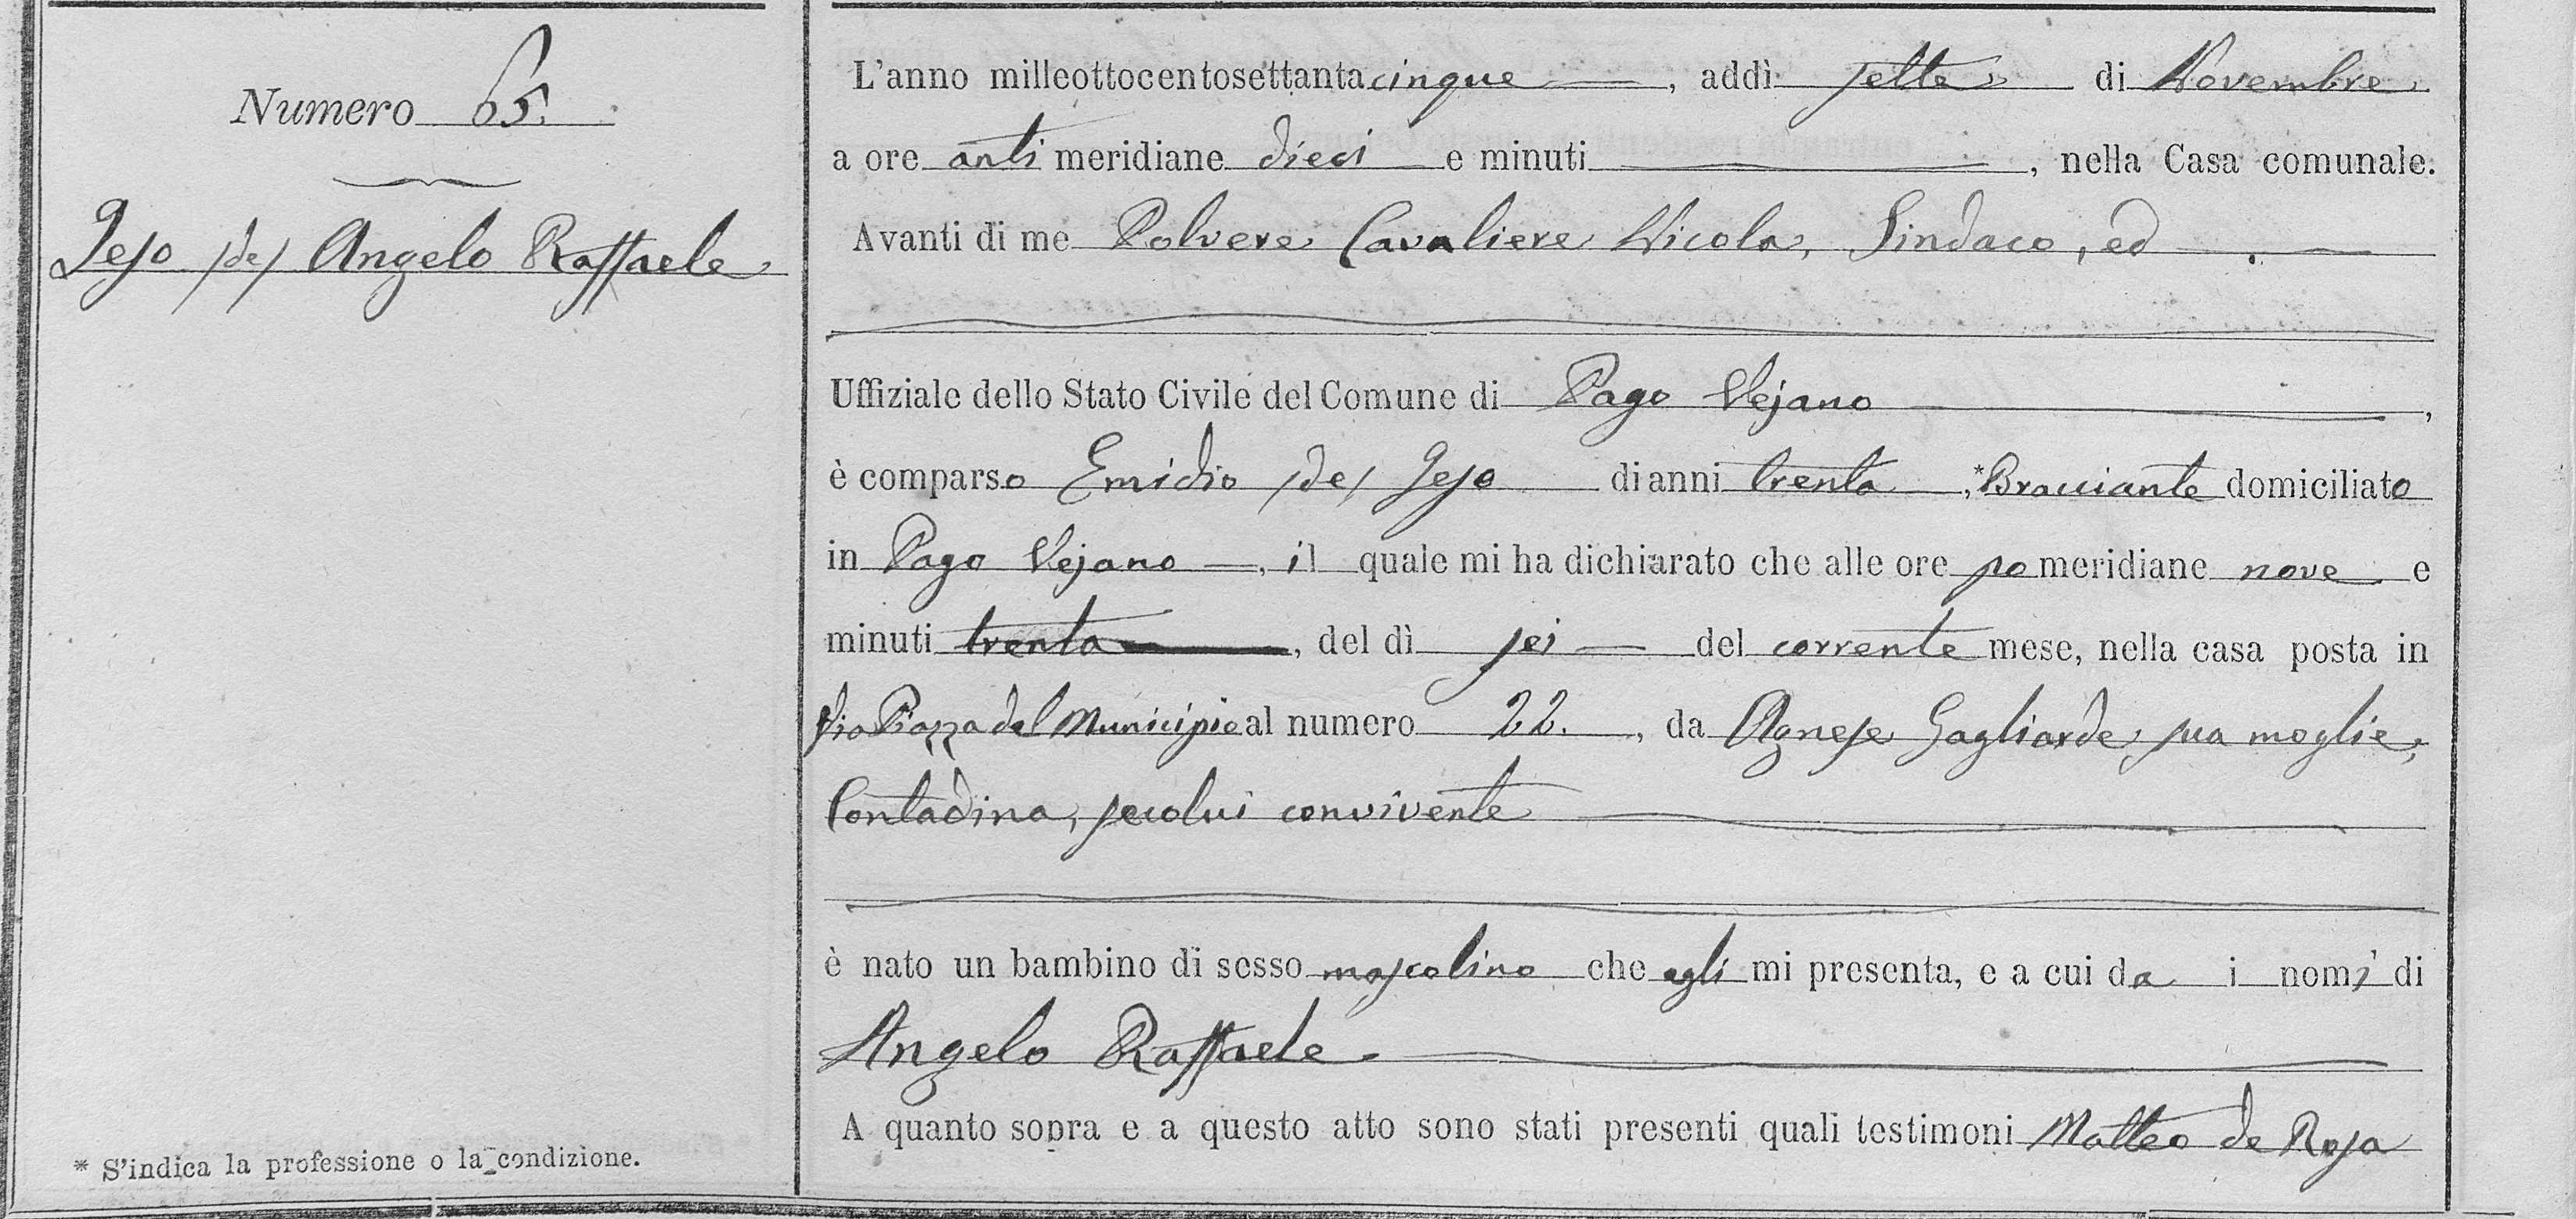 Numero 65.
Jeso (de) Angelo Raffaele
* S'indica la professione o la condizione.
L'anno milleottocentosettantacinque, addì sette di Novembre
a ore anti meridiane dieci e minuti, nella Casa comunale.
Avanti di me Polvere Cavaliere Nicola, Sindaco, ed
Uffiziale dello Stato Civile del Comune di Pago Vejano,
è comparso Emidio (de) Jeso di anni trenta, *Bracciante domiciliato
in Pago Vejano, il quale mi ha dichiarato che alle ore po meridiane nove e
minuti trenta, del dì sei del corrente mese, nella casa posta in
Via Piazza del Municipio al numero 22., da Agnese Gagliarde, sua moglie,
Contadina, secolui convivente
è nato un bambino di sesso mascolino che egli mi presenta, e a cui da i nomi di
Angelo Raffaele
A quanto sopra e a questo atto sono stati presenti quali testimoni Matteo de Rosa